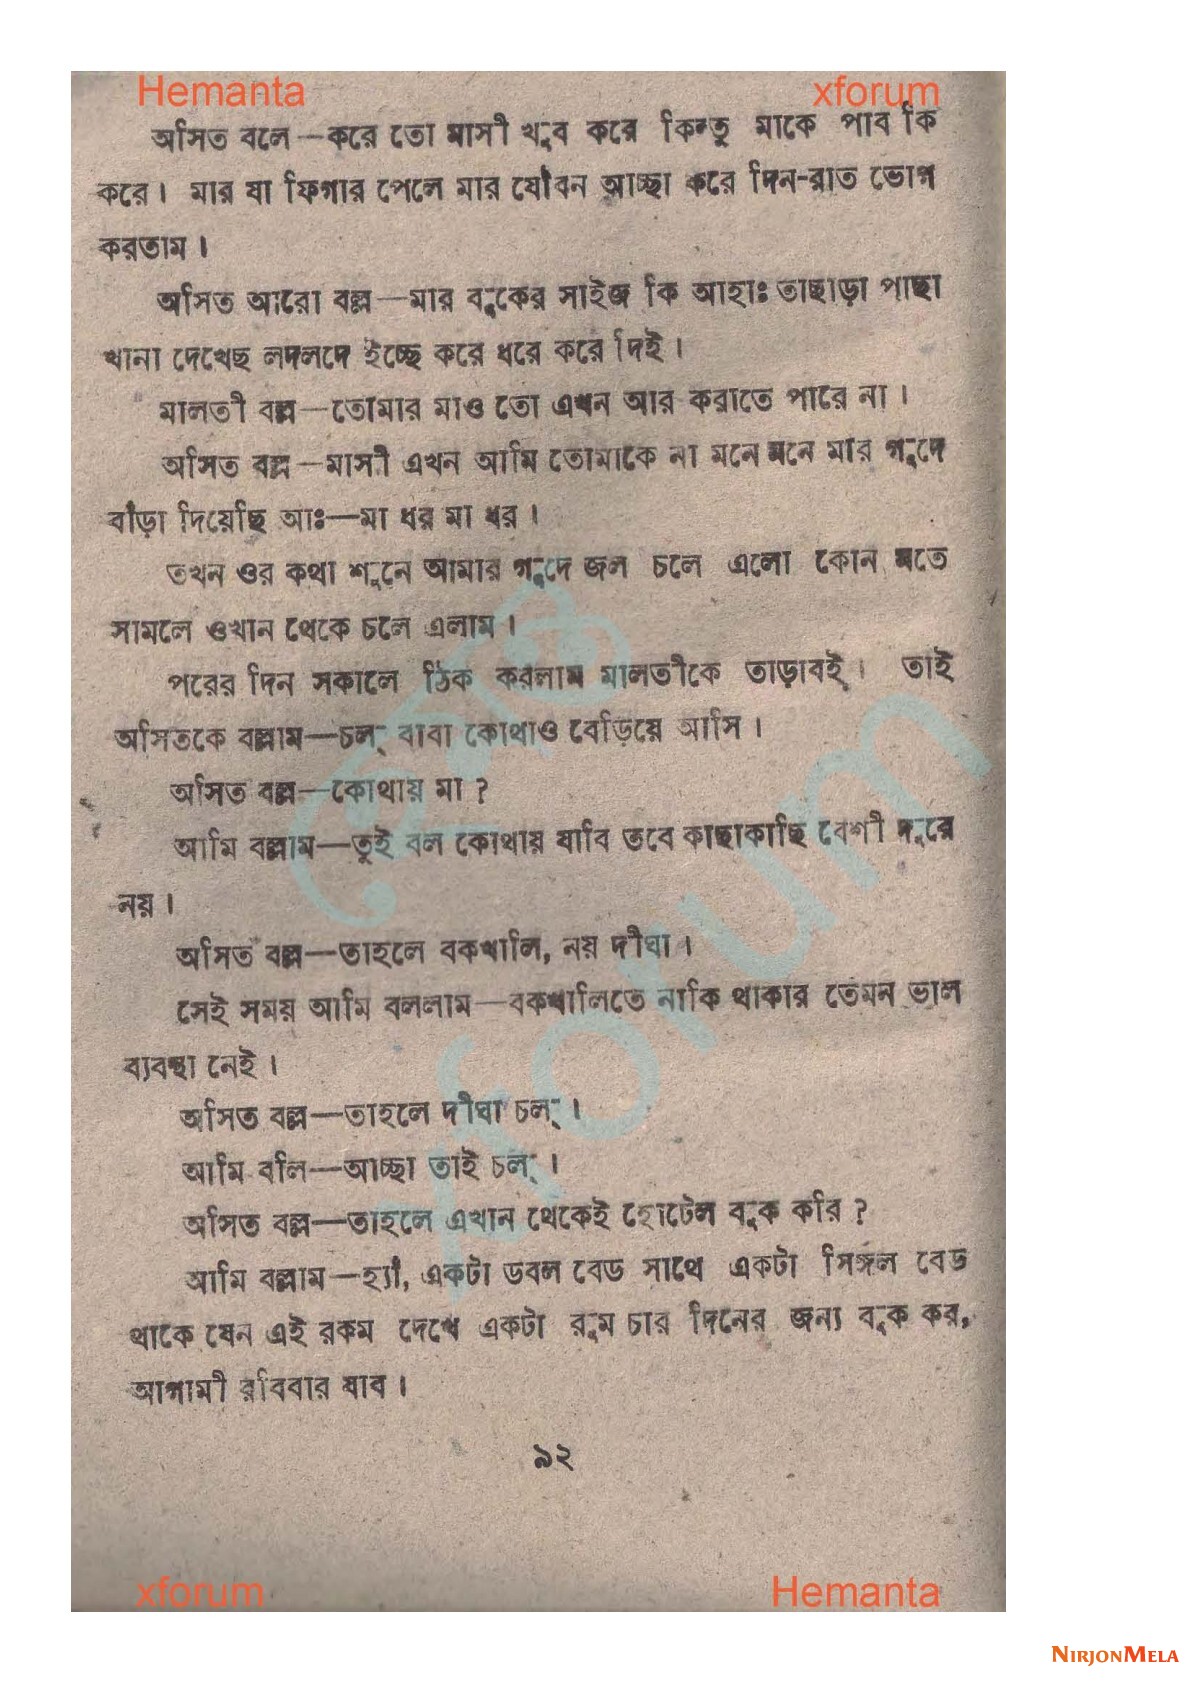 Hemanta xforum
অসিত বলে—করে তো মাসী খুব করে কিন্তু মাকে পাব কি
করে। মার যা ফিগার পেলে মার যৌবন আচ্ছা করে দিন-রাত ভোগ
করতাম।
অসিত আরো বল্ল—মার বুকের সাইজ কি আহাঃ তাছাড়া পাছা
খানা দেখেছ লদলদে ইচ্ছে করে ধরে করে দিই।
মালতী বল্ল—তোমার মাও তো এখন আর করাতে পারে না।
অসিত বল্ল—মাসী এখন আমি তোমাকে না মনে মনে মার গুদে
বাঁড়া দিয়েছি আঃ—মা ধর মা ধর।
তখন ওর কথা শুনে আমার গুদে জল চলে এলো কোন মতে
সামলে ওখান থেকে চলে এলাম।
পরের দিন সকালে ঠিক করলাম মালতীকে তাড়াবই। তাই
অসিতকে বল্লাম—চল্ বাবা কোথাও বেড়িয়ে আসি।
অসিত বল্ল—কোথায় মা?
আমি বল্লাম—তুই বল কোথায় যাবি তবে কাছাকাছি বেশী দূরে
নয়।
অসিত বল্ল—তাহলে বকখালি, নয় দীঘা।
সেই সময় আমি বললাম—বকখালিতে নাকি থাকার তেমন ভাল
ব্যবস্থা নেই।
অসিত বল্ল—তাহলে দীঘা চল্।
আমি বলি—আচ্ছা তাই চল্।
অসিত বল্ল—তাহলে এখান থেকেই হোটেল বুক করি?
আমি বল্লাম—হ্যাঁ, একটা ডবল বেড সাথে একটা সিঙ্গল বেড
থাকে যেন এই রকম দেখে একটা রুম চার দিনের জন্য বুক কর,
আগামী রবিবার যাব।
৯২
xforum
xforum Hemanta
NIRJONMELA